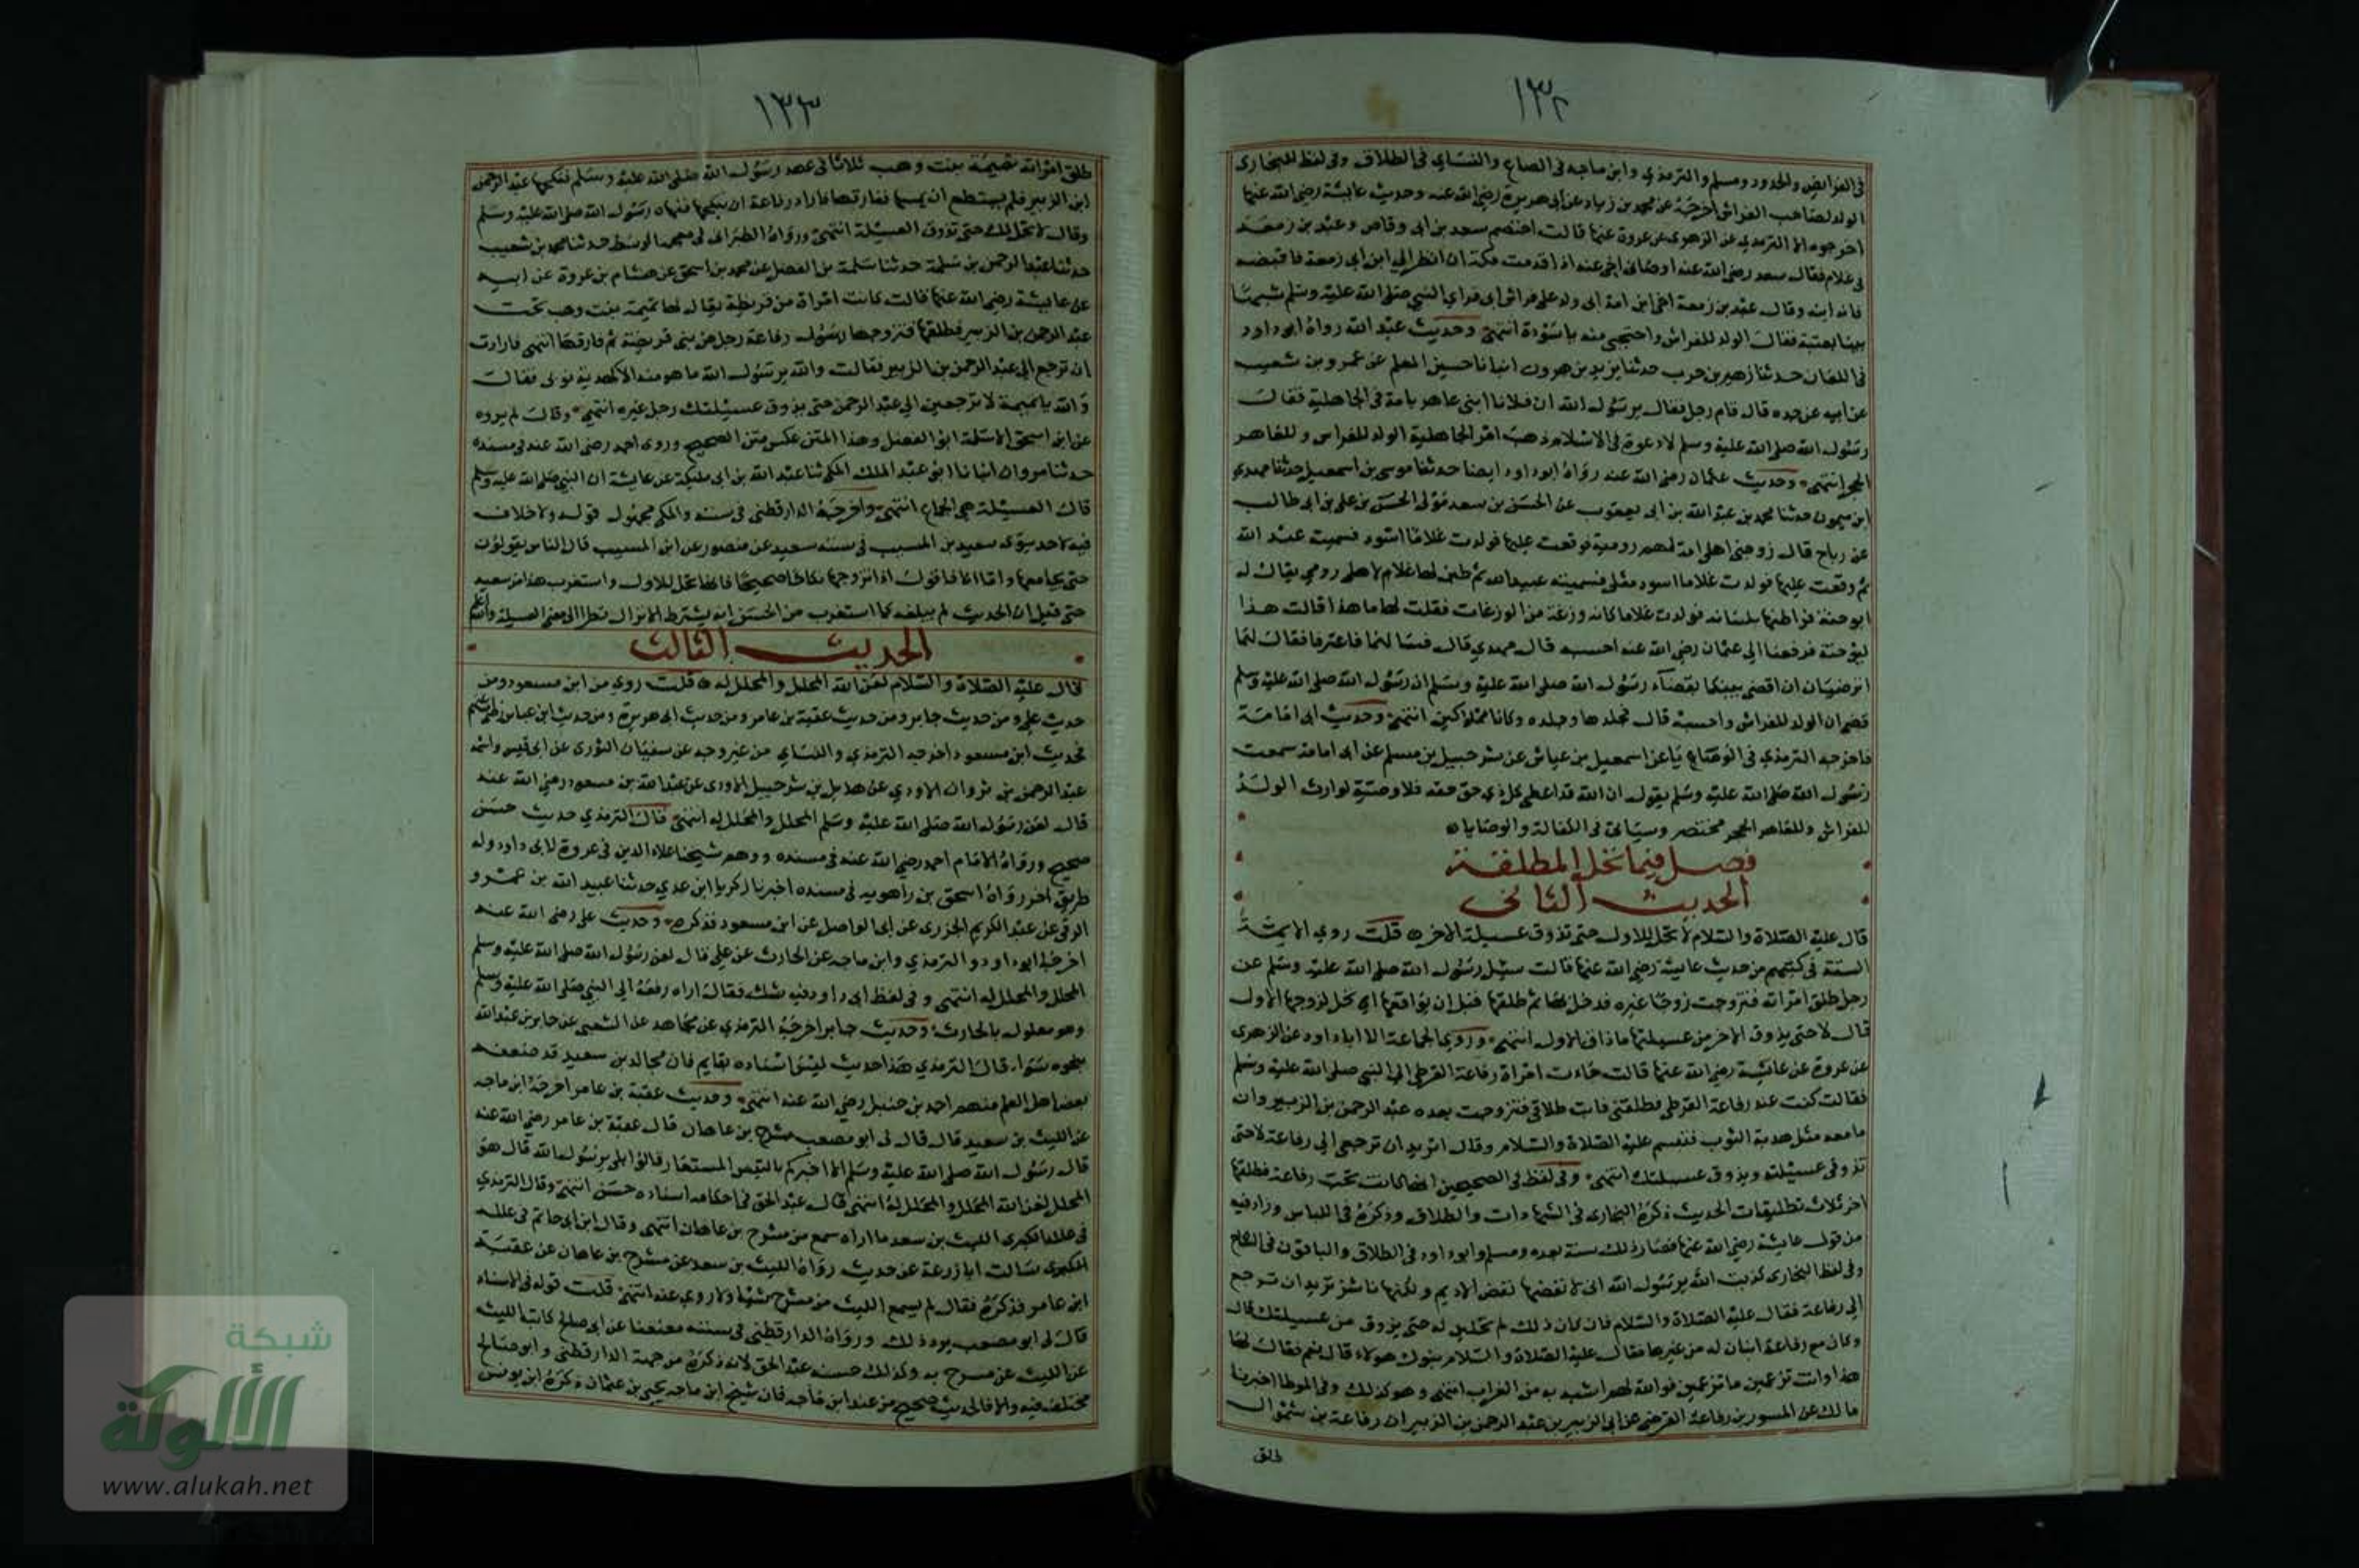 ١٣٢
في الفرايض والحدود ومسلم والترمذي وابن ماجه في الصاع والنساي في الطلاق وفي لفظ للبخاري
الولد لصاحب الفراش اخرجه عن محمد بن زياد عن ابي هريرة رضي الله عنه وحديث عايشة رضي الله عنها
اخرجوه الا الترمذي عن الزهري عن عروة عنها قالت اختصم سعد بن ابي وقاص وعبد بن زمعة
في غلام فقال سعد رضي الله عنه اوصاني اخي عتبة اذا قدمت مكة ان انظر الي ابن ابي زمعة فاقبضه
فانه ابنه وقال عبد بن زمعة اخي ابن امة ابي ولد على فراش ابي فراي النبي صلى الله عليه وسلم شبها
بينا بعتبة فقال الولد للفراش واحتجبي منه يا سودة انتهى وحديث عبد الله رواه ابو داود
في اللعان حدثنا زهير بن حرب حدثنا يزيد بن هرون انبانا حسين المعلم عن عمرو بن شعيب
عن ابيه عن جده قال قام رجل فقال يرسول الله ان فلانا ابني عاهر بامة في الجاهلية فقال
رسول الله صلى الله عليه وسلم لا دعوة في الاسلام ذهب امر الجاهلية الولد للفراش وللعاهر
الحجر انتهى وحديث عثمان رضي الله عنه رواه ابو داود ايضا حدثنا موسى بن اسمعيل حدثنا مهدي
ابن ميمون حدثنا محمد بن عبد الله بن ابي يعقوب عن الحسن بن سعد مولى الحسن بن علي بن ابي طالب
عن رباح قال زوجني اهلي امة لهم رومية فوقعت عليها فولدت غلاما اسود فسميت عبد الله
ثم وقعت عليها فولدت غلاما اسود مثلي فسميته عبيد الله ثم طبن لها غلام لاهلي رومي يقال له
ابو حنة فراطنها بلسانه فولدت غلاما كانه وزغة من الوزغات فقلت لها ما هذا قالت هذا
ليوحنة فرفعنا الي عثمان رضي الله عنه احسبه قال مهدي قال فسالهما فاعترفا فقال لهما
اترضيان ان اقضي بينكما بقضاء رسول الله صلى الله عليه وسلم ان رسول الله صلى الله عليه وسلم
قضى ان الولد للفراش واحسبه قال فجلدها وجلده وكانا مملوكين انتهى وحديث ابي امامة
فاخرجه الترمذي في الوصايا عن اسمعيل بن عياش عن شرحبيل بن مسلم عن ابي امامة سمعت
رسول الله صلى الله عليه وسلم يقول ان الله قد اعطى كل ذي حق حقه فلا وصية لوارث الولد
للفراش وللعاهر الحجر مختصر وسياتي في الكفالة والوصايا
فصل فيما تحل المطلقة
الحديث الثاني
قال عليه الصلاة والسلام لا تحل للاول حتى تذوق عسيلة الاخر قلت روي الايمة
الستة في كتبهم من حديث عايشة رضي الله عنها قالت سيل رسول الله صلى الله عليه وسلم عن
رجل طلق امراته فتزوجت زوجا غيره فدخل بها ثم طلقها قبل ان يواقعها اتحل لزوجها الاول
قال لا حتى يذوق الاخر من عسيلتها ما ذاق الاول انتهى وروي الجماعة الا ابا داود عن الزهري
عن عروة عن عايشة رضي الله عنها قالت جاءت امراة رفاعة القرظي الي النبي صلى الله عليه وسلم
فقالت كنت عند رفاعة القرظي فطلقني فابت طلاقي فتزوجت بعده عبد الرحمن بن الزبير وان
ما معه مثل هدبة الثوب فتبسم عليه الصلاة والسلام وقال اتريد ان ترجعي الي رفاعة لا حتى
تذوقي عسيلته ويذوق عسيلتك انتهى وفي لفظ في الصحيحين انها كانت تحت رفاعة فطلقها
اخر ثلاث تطليقات الحديث ذكره البخاري في الشهادات والطلاق وذكره في اللباس وزاد فيه
من قول عايشة رضي الله عنها فصار ذلك سنة بعده ومسلم وابو داود في الطلاق والباقون في النكاح
وفي لفظ البخاري كذبت والله يرسول الله اني لانفضها نفض الاديم ولكنها ناشز تريد ان ترجع
الي رفاعة فقال عليه الصلاة والسلام فان كان ذلك لم تحلين له حتى يذوق من عسيلتك قال
وكان مع رفاعة ابنان له من غيرها فقال عليه الصلاة والسلام بنوك هولاء قال نعم فقال لها
هذا وانت تزعمين ما تزعمين فوالله لهم اشبه به من الغراب انتهى وهو كذلك وفي الموطا اخبرنا
مالك عن المسور بن رفاعة القرظي عن ابي الزبير بن عبد الرحمن بن الزبير ان رفاعة بن شموال
طلق
١٣٣
طلق امراته تميمة بنت وهب ثلاثا في عهد رسول الله صلى الله عليه وسلم فنكحها عبد الرحمن
ابن الزبير فلم يستطع ان يمسها ففارقها فاراد رفاعة ان ينكحها فنهاه رسول الله صلى الله عليه وسلم
وقال لا تحل لك حتى تذوق العسيلة انتهى ورواه الطبراني في معجمه الوسط حدثنا محمد بن شعيب
حدثنا عبد الرحمن بن سلمة حدثنا سلمة بن الفضل عن محمد بن اسحق عن هشام بن عروة عن ابيه
عن عايشة رضي الله عنها قالت كانت امراة من قريظة يقال لها تميمة بنت وهب تحت
عبد الرحمن بن الزبير فطلقها فتزوجها رفاعة رجل من بني قريظة ثم فارقها انتهى فارادت
ان ترجع الي عبد الرحمن بن الزبير فقالت والله يرسول الله ما هو منه الا كهدبة ثوبي فقال
والله يا تميمة لا ترجعين الي عبد الرحمن حتى يذوق عسيلتك رجل غيره انتهى وقال لم يروه
عن ابن اسحق الا سلمة ابن الفضل وهذا المتن عكس متن الصحيح وروى احمد رضي الله عنه في مسنده
حدثنا مروان انبانا ابو عبد الملك المكي ثنا عبد الله بن ابي مليكة عن عايشة ان النبي صلى الله عليه وسلم
قال العسيلة هي الجماع انتهى واخرجه الدارقطني في سننه والمكي مجهول قوله ولا خلاف
فيه لاحد سوى سعيد بن المسيب في سننه سعيد عن منصور عن ابن المسيب قال الناس يقولون
حتى يجامعها واما انا فاقول اذا تزوجها نكاحا صحيحا فانها تحل للاول واستغرب هذا من سعيد
حتى قيل ان الحديث لم يبلغه كما استغرب من الحسن انه يشترط الانزال نظرا الى معنى العسيلة والله اعلم
الحديث الثالث
قال عليه الصلاة والسلام لعن الله المحلل والمحلل له قلت روي من ابن مسعود ومن
حديث علي ومن حديث جابر ومن حديث عقبة بن عامر ومن حديث ابي هريرة ومن حديث ابن عباس رضي الله عنهم
فحديث ابن مسعود اخرجه الترمذي والنساي من غير وجه عن سفيان الثوري عن ابي قيس واسمه
عبد الرحمن بن ثروان الاودي عن هذيل بن شرحبيل الاودي عن عبد الله بن مسعود رضي الله عنه
قال لعن رسول الله صلى الله عليه وسلم المحلل والمحلل له انتهى قال الترمذي حديث حسن
صحيح ورواه الامام احمد رضي الله عنه في مسنده ووهم شيخنا علاء الدين في عزوه لابي داود وله
طريق اخر رواه اسحق بن راهويه في مسنده اخبرنا زكريا ابن عدي حدثنا عبيد الله بن عمرو
الرقي عن عبد الكريم الجزري عن ابي الواصل عن ابن مسعود فذكره وحديث علي رضي الله عنه
اخرجه ابو داود والترمذي وابن ماجه عن الحارث عن علي قال لعن رسول الله صلى الله عليه وسلم
المحلل والمحلل له انتهى وفي لفظ ابي داود فيه شك فقال اراه رفعه الي النبي صلى الله عليه وسلم
وهو معلول بالحارث وحديث جابر اخرجه الترمذي عن مجاهد عن الشعبي عن جابر بن عبد الله
بنحوه سواء قال الترمذي هذا حديث ليس اسناده بقايم فان مجالد بن سعيد قد ضعفه
بعض اهل العلم منهم احمد بن حنبل رضي الله عنه انتهى وحديث عقبة بن عامر اخرجه ابن ماجه
عن الليث بن سعيد قال قال لي ابو مصعب مشرح بن هاعان قال عقبة بن عامر رضي الله عنه
قال رسول الله صلى الله عليه وسلم الا اخبركم بالتيس المستعار قالوا بلى يرسول الله قال هو
المحلل لعن الله المحلل والمحلل له انتهى قال عبد الحق في احكامه اسناده حسن انتهى وقال الترمذي
في علله الكبرى الليث بن سعد ما اراه سمع من مشرح بن هاعان انتهى وقال ابن ابي حاتم في علله
الكبرى سالت ابا زرعة عن حديث رواه الليث بن سعد عن مشرح بن هاعان عن عقبة
ابن عامر فذكره فقال لم يسمع الليث من مشرح شيا ولا روي عنه انتهى قلت قوله في الاسناد
قال لي ابو مصعب يرد ذلك ورواه الدارقطني في سننه معنعنا عن ابي صالح كاتب الليث
عن الليث عن مشرح به وكذلك حسنه عبد الحق لانه ذكره من جهة الدارقطني وابو صالح
مختلف فيه والا فالحديث صحيح من عند ابن ماجه فان شيخ ابن ماجه يحيى بن عثمان ذكره ابن يونس
شبكة
الألوكة
www.alukah.net